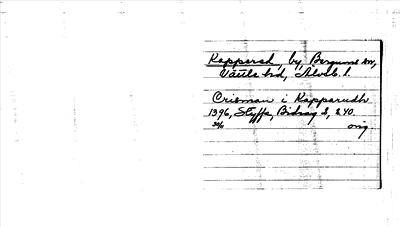 Kapperød, by, Bergums sn,
Vättle hd, Älvsb. l.
Crisman i Kapparudh
1396, Styffe, Bidrag 2, s 40.
30/6 orig